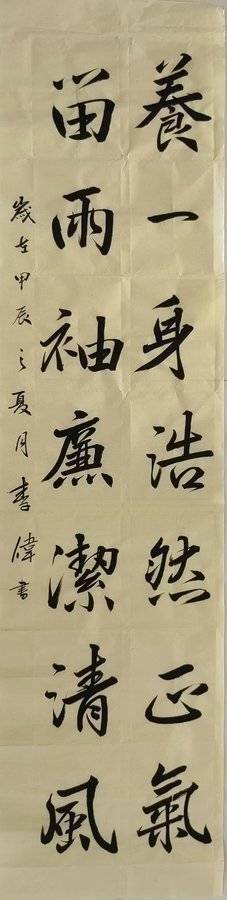 養一身浩然正氣
留兩袖廉潔清風
歲在甲辰之夏月李偉書